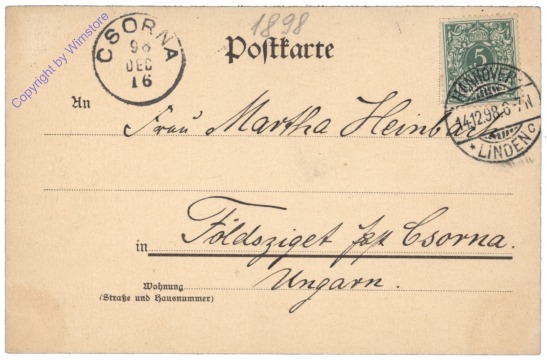 1898
Postkarte
CSORNA
98
DEC
16
5
HANNOVER
14.12.98.6-7N
* LINDEN c
An
Frau Martha Heinbach
in Földsziget Csorna.
Ungarn.
Wohnung
(Straße und Hausnummer)
Copyright by Wimstore